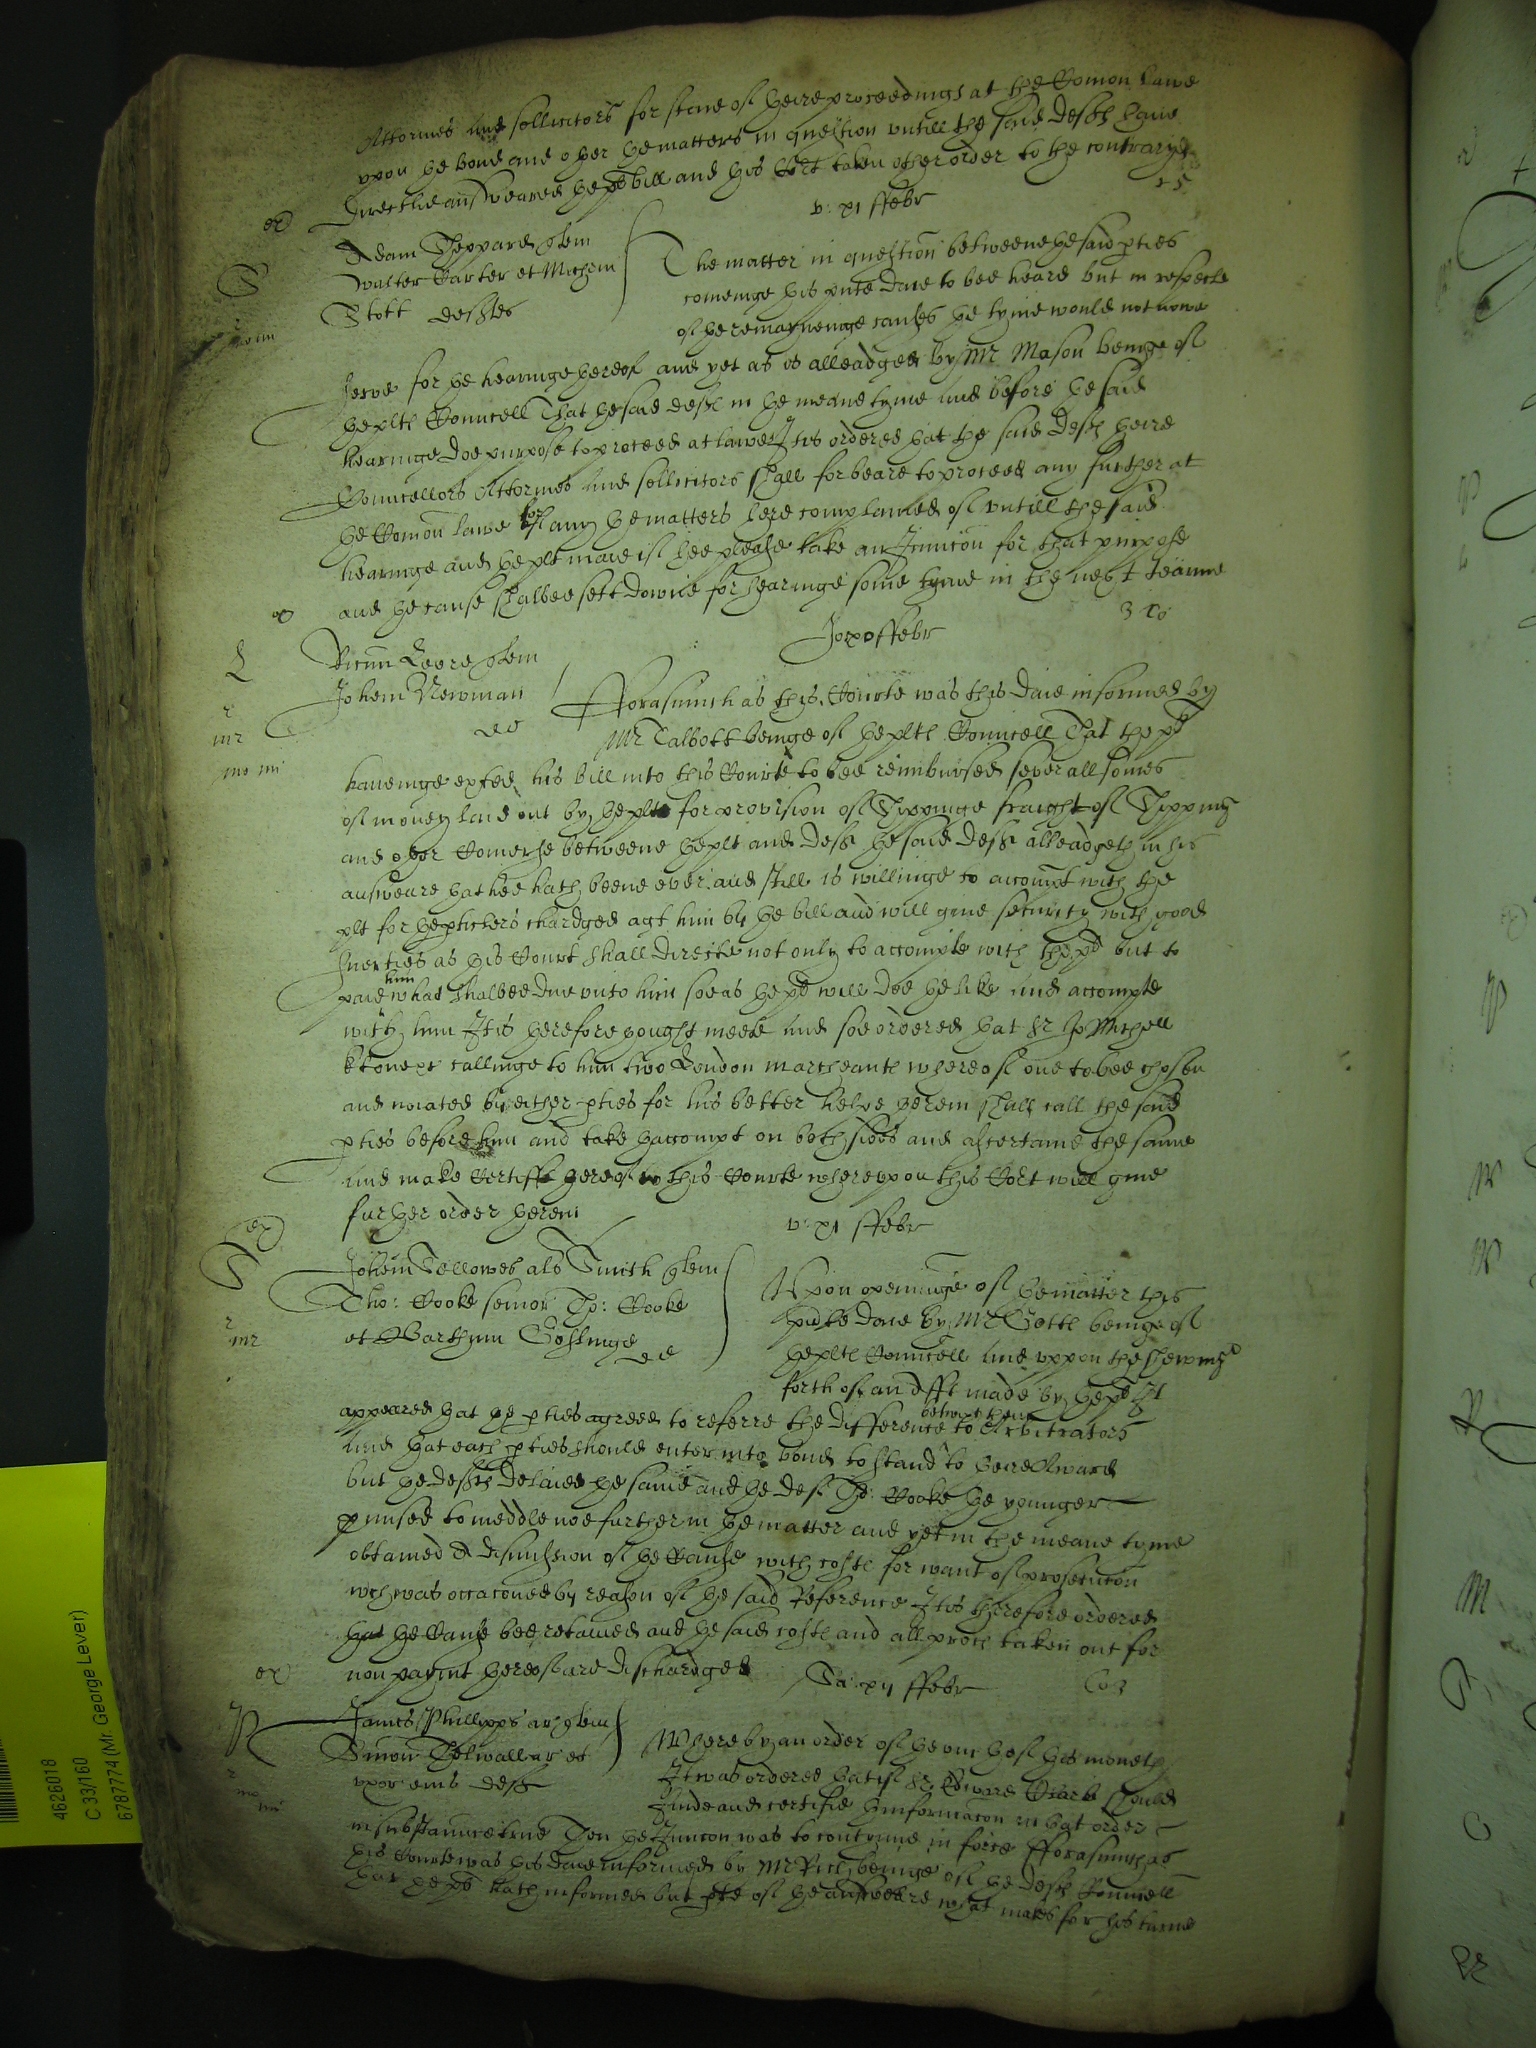 Attorneis and sollicitors for staie of theire proceedings at the Comon Lawe
vpon the bond and other the matters in question vntill the said deftes haue
directlie answeared the pts bill and this Cort taken other order to the contrary
v: xi ffebr
Adam Sheppard quer
Walter Carter et
Stott deftes
The matter in question betweene the said pties
cominge this pnte daie to bee heard but in respecte
of the remayneinge causes the tyme would not nowe
serve for the hearinge thereof and yet as is alleadged by Mr Mason beinge of
the pltes Councell That the said deftes in the meane tyme and before the said
hearinge doe purpose to proceed at lawe It is ordered that the said deftes theire
Councellors Attorneis and sollicitors shall forbeare to proceed any further at
the Comon Lawe for any the matters here complained of vntill the said
hearinge and the plt maie if hee please take an Iniuncon for that purpose
and the cause shalbee sett downe for hearinge some tyme in the next tearme
Jo x o ffebr
Ricum Leere quer
Johem Newman
de
Fforasmuch as this Courte was this daie informed by
Mr Talbott beinge of the pltes Councell That the pt
haueinge exhted his bill into this Courte to bee reimbursed severall somes
of money laid out by the plt for provision of Shippinge fraight of Shipping
and other Comerse betweene the plt and deft the said deft alleadgeth in his
answeare that hee hath beene ever and still is willinge to accompt with the
plt for the pticlers chardged agt him by the bill and will giue security with good
suerties as this Court shall directe not only to accompte with the pt but to
paie him what shalbee due vnto him soe as the pt will doe the like and accompte
with him It is therefore thought meete and soe ordered that Sr Jo Michell
kt one &c callinge to him two London marchants whereof one to bee chosen
and noiated by either pties for his better helpe therein shall call the said
pties before him and take thaccompt on both sides and ascertaine the same
and make Certifft thereof to this Courte wherevpon this Cort will giue
further order therein
v: xi ffebr
Johem Fellowes als Smith quer
Tho: Cooke senior Tho: Cooke
et Barthum Goslinge
de
Vpon openinge of the matter this
pnte daie by Mr Gotte beinge of
the pltes Councell and vppon the shewing
forth of an afft made by the pt It
appeared that the pties agreed to referre the difference betwixt them to Arbitrators
and that each pties should enter into bond to stand to theire Award
but the deftes delaied the same and the deft Tho: Cooke the younger
pmised to meddle noe further in the matter and yet in the meane tyme
obtained A dismission of the Cause with costes for want of prosecucon
wch was occacioned by reason of the said Reference It is therefore ordered
that the Cause bee retained and the said costes and all proces taken out for
non paymt thereof are dischardged
Sa: xii ffebr
James Phillipps ar quer
Simon Thelwall ar et
vxor eius deft
Where by an order of the one th of this moneth
It was ordered that if Sr Edward Clark should
finde and certifie thinformacon in that order
in substaunce true Then the Iniuncon was to contynue in force Fforasmuch as
this Courte was this daie informed by Mr Rich beinge of the deftes Councell
that the pt hath informed but pte of the answeare what makes for his turne
4626018
C 33/160
6787774 (Mr. George Lever)